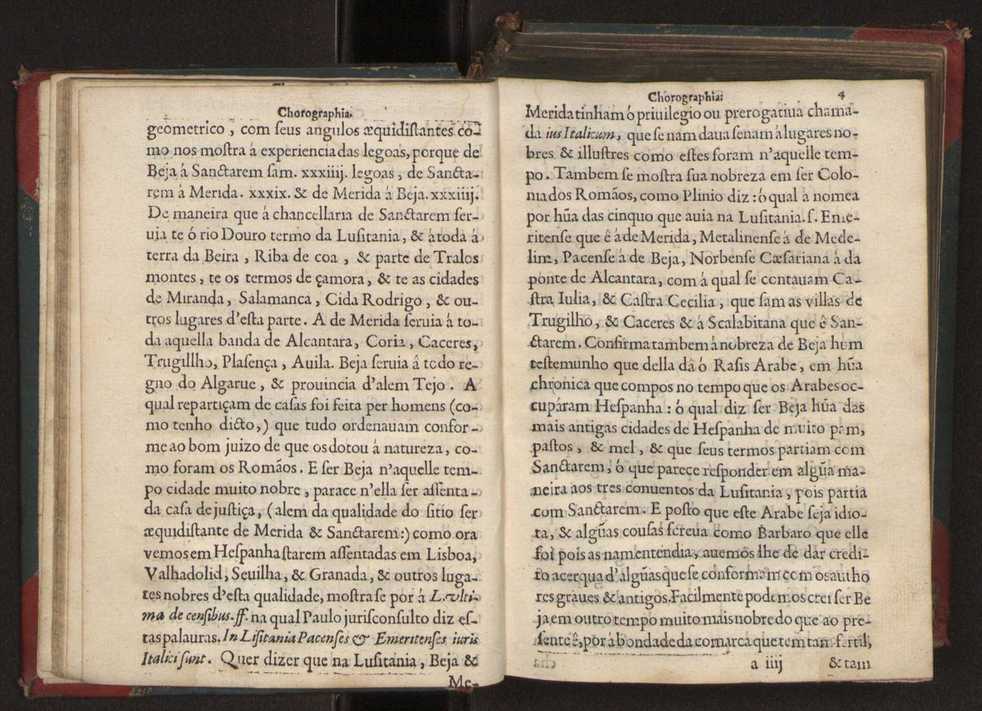 Chorographia.
geometrico, com ſeus angulos æquidiſtantes co-
mo nos moſtra á experiencia das legoas, porque de
Beja á Sanctarem ſam. xxxiiij. legoas, de Sancta-
rem á Merida. xxxix. & de Merida á Beja. xxxiiij.
De maneira que á chancellaria de Sanctarem ſer-
uia te ó rio Douro termo da Luſitania, & á toda á
terra da Beira, Riba de coa, & parte de Tralos
montes, te os termos de çamora, & te as cidades
de Miranda, Salamanca, Cida Rodrigo, & ou-
tros lugares d'eſta parte. A de Merida ſeruia á to-
da aquella banda de Alcantara, Coria, Caceres,
Trugillho, Plaſença, Auila. Beja ſeruia á todo re-
gno do Algarue, & prouincia d'alem Tejo. A
qual repartiçam de caſas foi feita per homens (co-
mo tenho dicto,) que tudo ordenauam confor-
me ao bom juizo de que os dotou á natureza, co-
mo foram os Romãos. E ſer Beja n'aquelle tem-
po cidade muito nobre, parace n'ella ſer aſſenta-
da caſa de juſtiça, (alem da qualidade do ſitio ſer
æquidiſtante de Merida & Sanctarem:) como ora
vemos em Heſpanha ſtarem aſſentadas em Lisboa,
Valhadolid, Seuilha, & Granada, & outros luga-
res nobres d'eſta qualidade, moſtra ſe por á L. vlti-
ma de cenſibus. ff. na qual Paulo juriſconſulto diz eſ-
tas palauras. In Liſitania Pacenſes & Emeritenſes iuris
Italici ſunt. Quer dizer que na Luſitania, Beja &
Me-
Chorographia: 4
Merida tinham ó priuilegio ou prerogatiua chama-
da ius Italicum, que ſe nam daua ſenam á lugares no-
bres & illuſtres como eſtes foram n'aquelle tem-
po. Tambem ſe moſtra ſua nobreza em ſer Colo-
nia dos Romãos, como Plinio diz: ó qual a nomea
por hũa das cinquo que auia na Luſitania. ſ. Eme-
ritenſe que ê á de Merida, Metalinenſe á de Mede-
lim, Pacenſe á de Beja, Norbenſe Cæſariana á da
ponte de Alcantara, com á qual ſe contauam Ca-
ſtra Iulia, & Caſtra Cecilia, que ſam as villas de
Trugilho, & Caceres & á Scalabitana que ê San-
ctarem. Confirma tambem á nobreza de Beja hum
teſtemunho que della dá ó Raſis Arabe, em hũa
chronica que compos no tempo que os Arabes oc-
cupáram Heſpanha: ó qual diz ſer Beja hũa das
mais antigas cidades de Heſpanha de muito pam,
paſtos, & mel, & que ſeus termos partiam com
Sanctarem, ó que parece reſponder em algũa ma-
neira aos tres conuentos da Luſitania, pois partia
com Sanctarem. E poſto que eſte Arabe ſeja idio-
ta, & algũas couſas ſcreua como Barbaro que elle
foi pois as nam entendia, auemos lhe de dar credi-
to acerqua d'algũas que ſe conformam com os autho
res graues & antigos. Facilmente podemos crer ſer Be
ja em outro tempo muito mais nobre do que ao pre-
ſente ê, por á bondade da comarca que tem tam fertil,
a iiij & tam